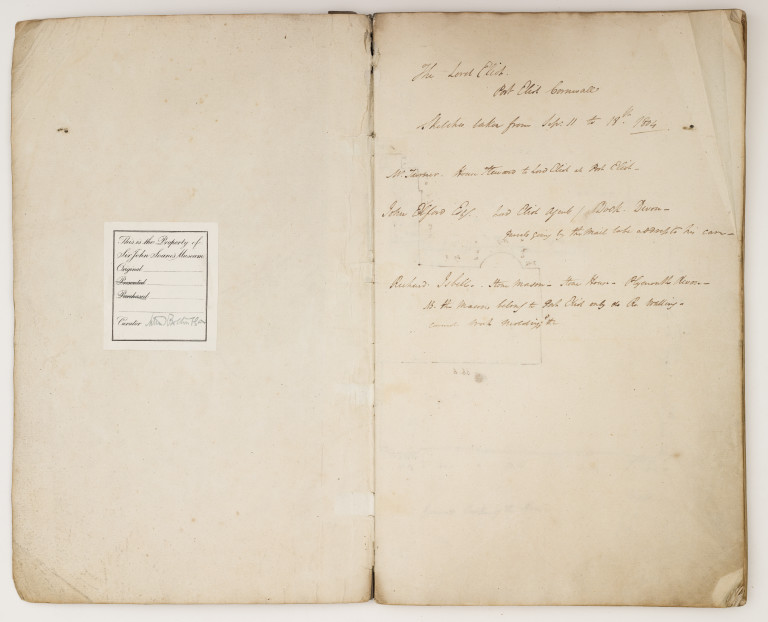 This is the Property of
Sir John Soane's Museum
Original
Presented
Purchased
Curator
The Lord Eliot
Port Eliot Cornwall
Sketches taken from Sepr 11 to 18th 1804
Mr Turner. House Steward to Lord Eliot at Port Eliot -
John Esq. Lord Eliot Agent / Devon -
going by the Mail to be to his care -
Richard Isbell. Stone Mason - Stone House - Plymouth Devon -
the Masons belong to Port Eliot only do Ru Walling -
cannot work Moldings &c